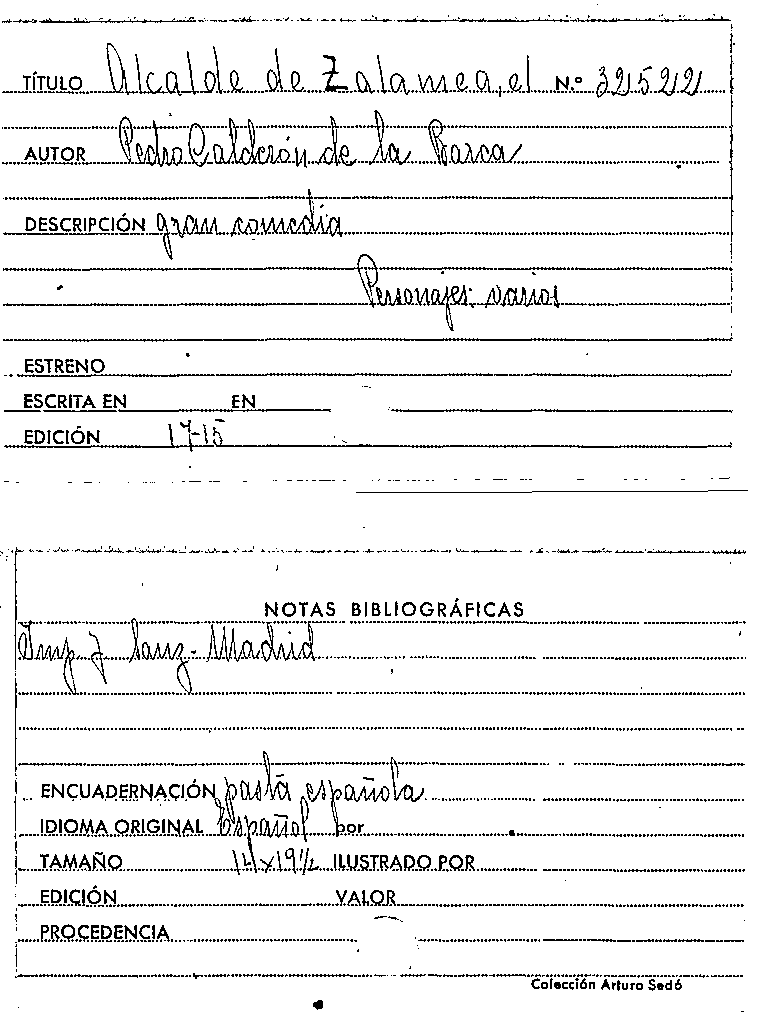 TÍTULO Alcalde de Zalamea, el N.º 32522
AUTOR Pedro Calderón de la Barca
DESCRIPCIÓN gran comedia
Personajes: varios
ESTRENO
ESCRITA EN EN
EDICIÓN 1715
NOTAS BIBLIOGRÁFICAS
Imp J Sanz - Madrid
ENCUADERNACIÓN pasta española
IDIOMA ORIGINAL Español por
TAMAÑO 14 x 19 1/2 ILUSTRADO POR
EDICIÓN VALOR
PROCEDENCIA
Colección Arturo Sedó